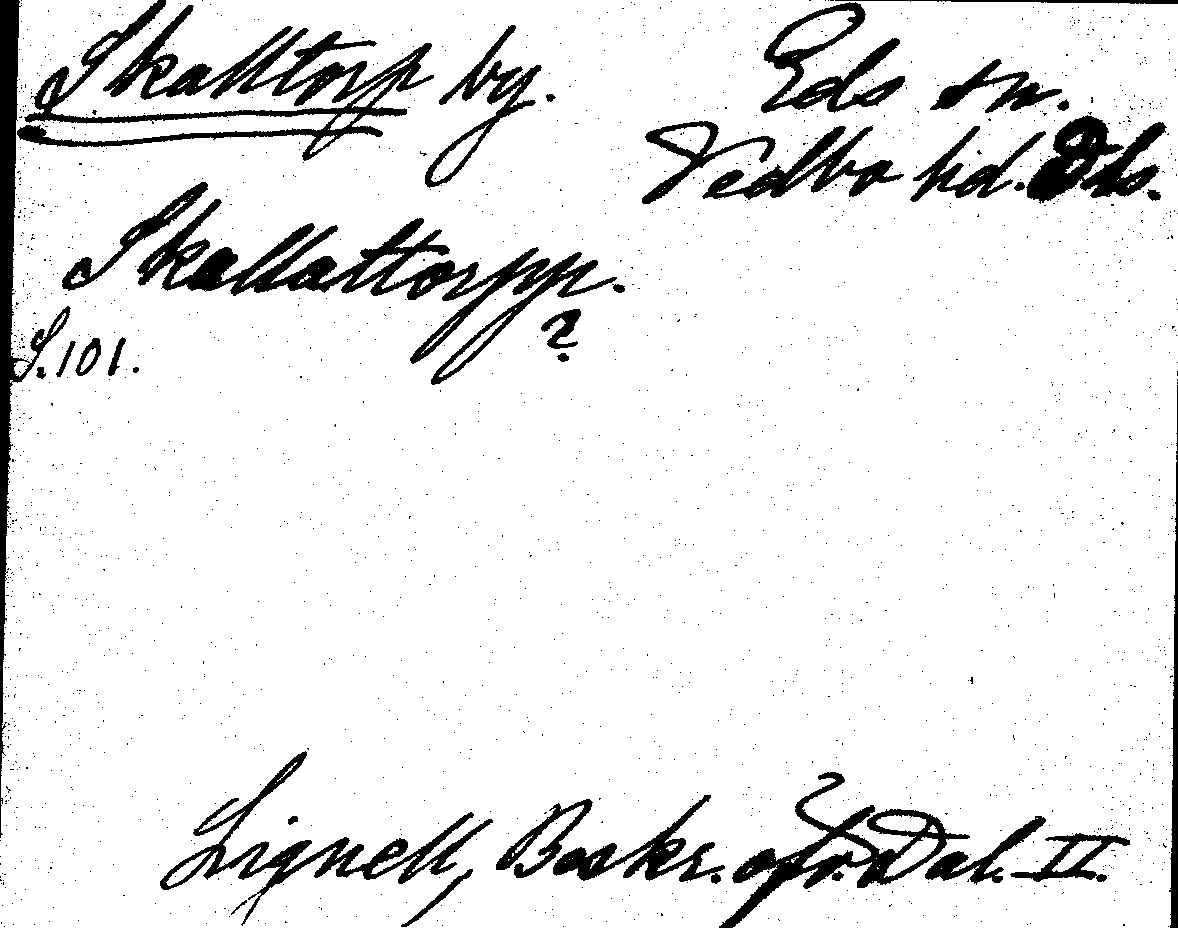 Skalltorp by.
Eds sn.
Vedbo hd. Dls.
Skallattorpp.
?
S. 101.
Lignell, Beskr. öfv. Dal. II.